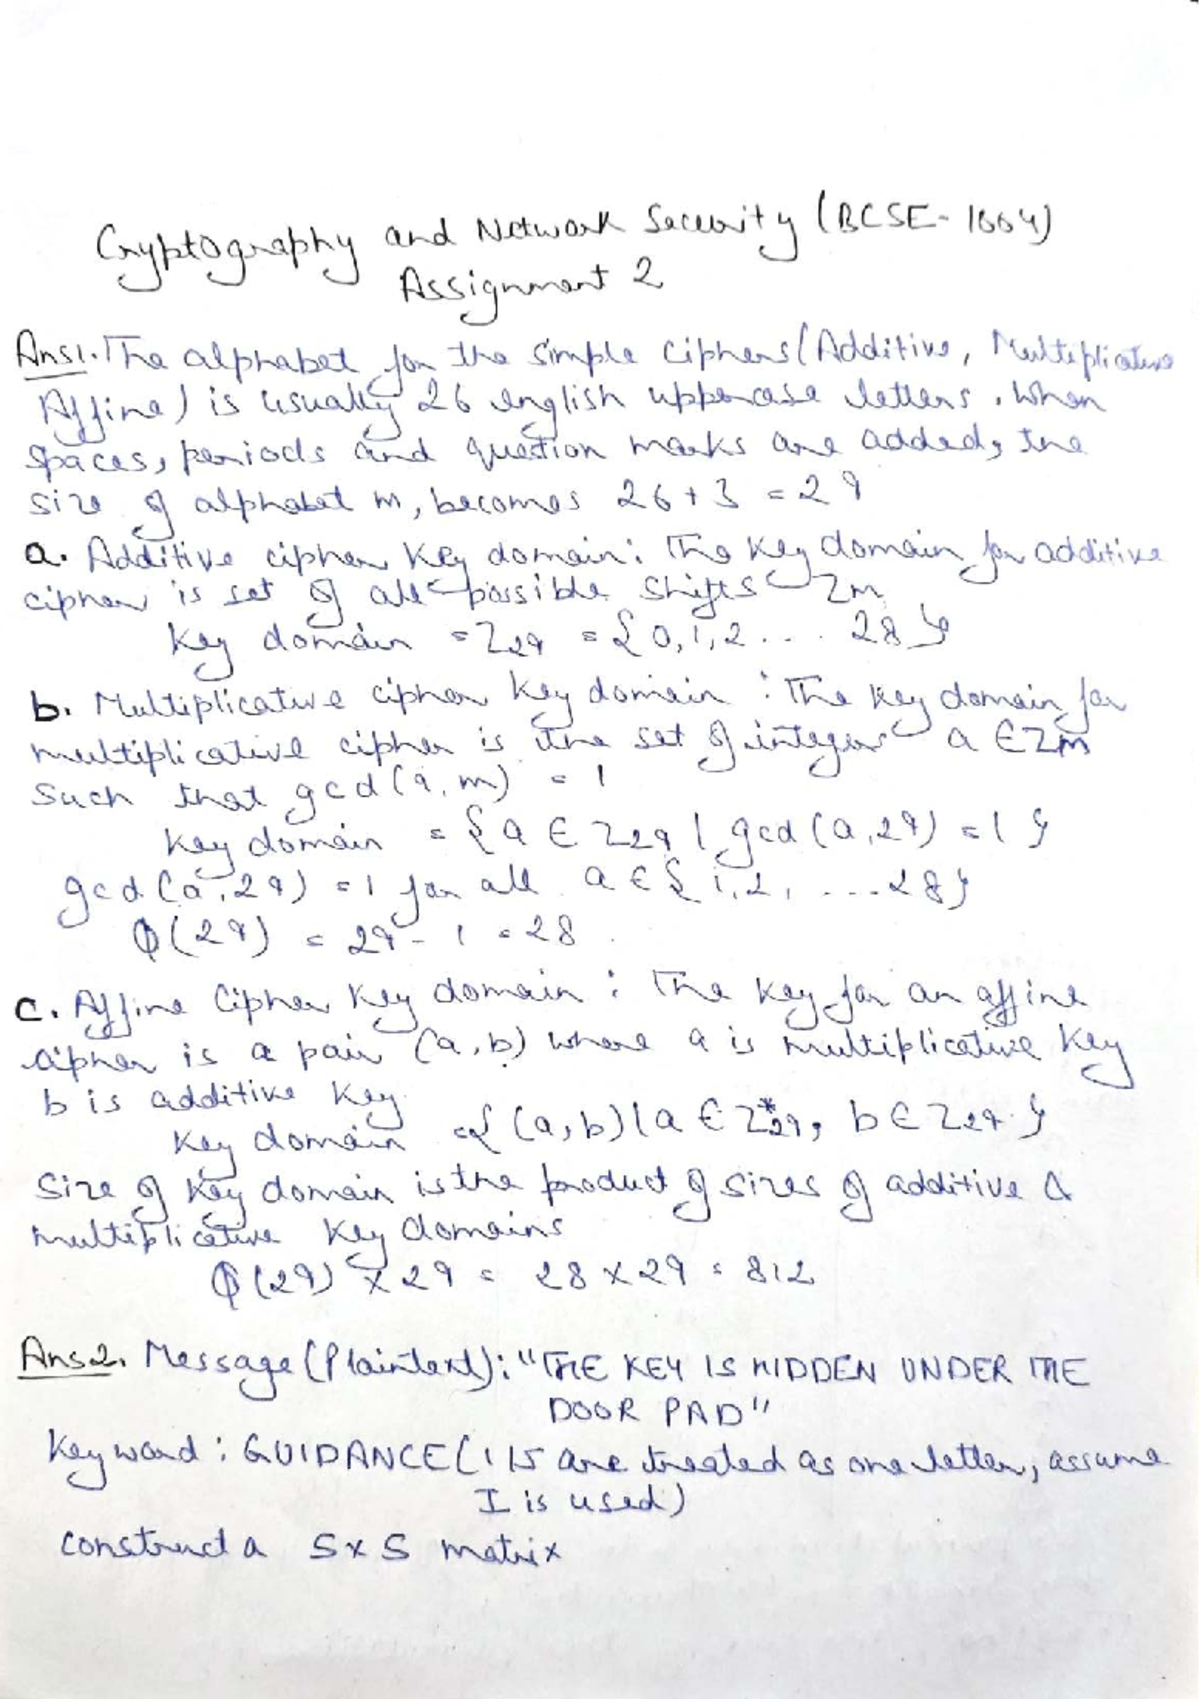 Cryptography and Network Security (BCSE-1004)
Assignment 2
Ans1. The alphabet for the simple ciphers (Additive, Multiplicative
Affine) is usually 26 english uppercase letters. When
spaces, periods and question marks are added, the
size of alphabet m, becomes 26+3 = 29
a. Additive cipher key domain: The key domain for additive
cipher is set of all possible shifts Zm
Key domain = Z29 = {0,1,2.... 28}
b. Multiplicative cipher key domain : The key domain for
multiplicative cipher is the set of integers a ∈ Zm
such that gcd(a,m) = 1
key domain = {a ∈ Z29 | gcd(a,29) = 1}
gcd(a,29) = 1 for all a ∈ {1,2, ....28}
Φ(29) = 29-1 = 28
c. Affine Cipher Key domain : The key for an affine
cipher is a pair (a,b) where a is multiplicative key
b is additive key.
Key domain = {(a,b) | a ∈ Z*29, b ∈ Z29}
Size of key domain is the product of sizes of additive &
multiplicative key domains
Φ(29) x 29 = 28 x 29 = 812
Ans2. Message (Plaintext): "THE KEY IS HIDDEN UNDER THE
DOOR PAD"
Keyword : GUIDANCE (I/J are treated as one letter, assume
I is used)
construct a 5x5 matrix